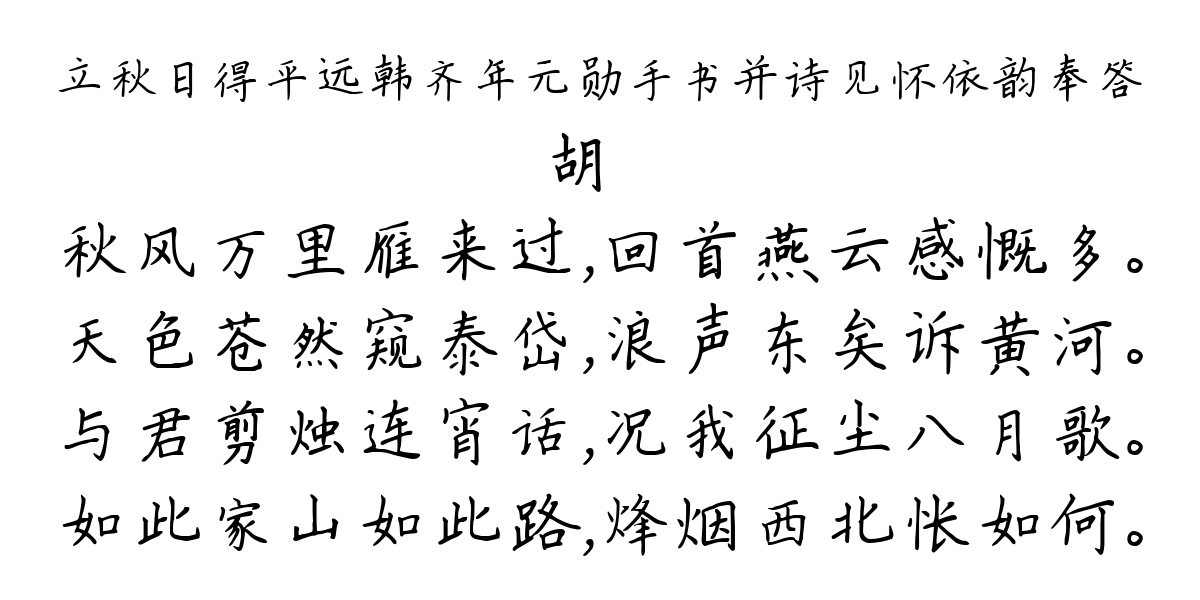 立秋日得平远韩齐年元勋手书并诗见怀依韵奉答
胡
秋风万里雁来过,回首燕云感慨多。
天色苍然窥泰岱,浪声东矣诉黄河。
与君剪烛连宵话,况我征尘八月歌。
如此家山如此路,烽烟西北怅如何。